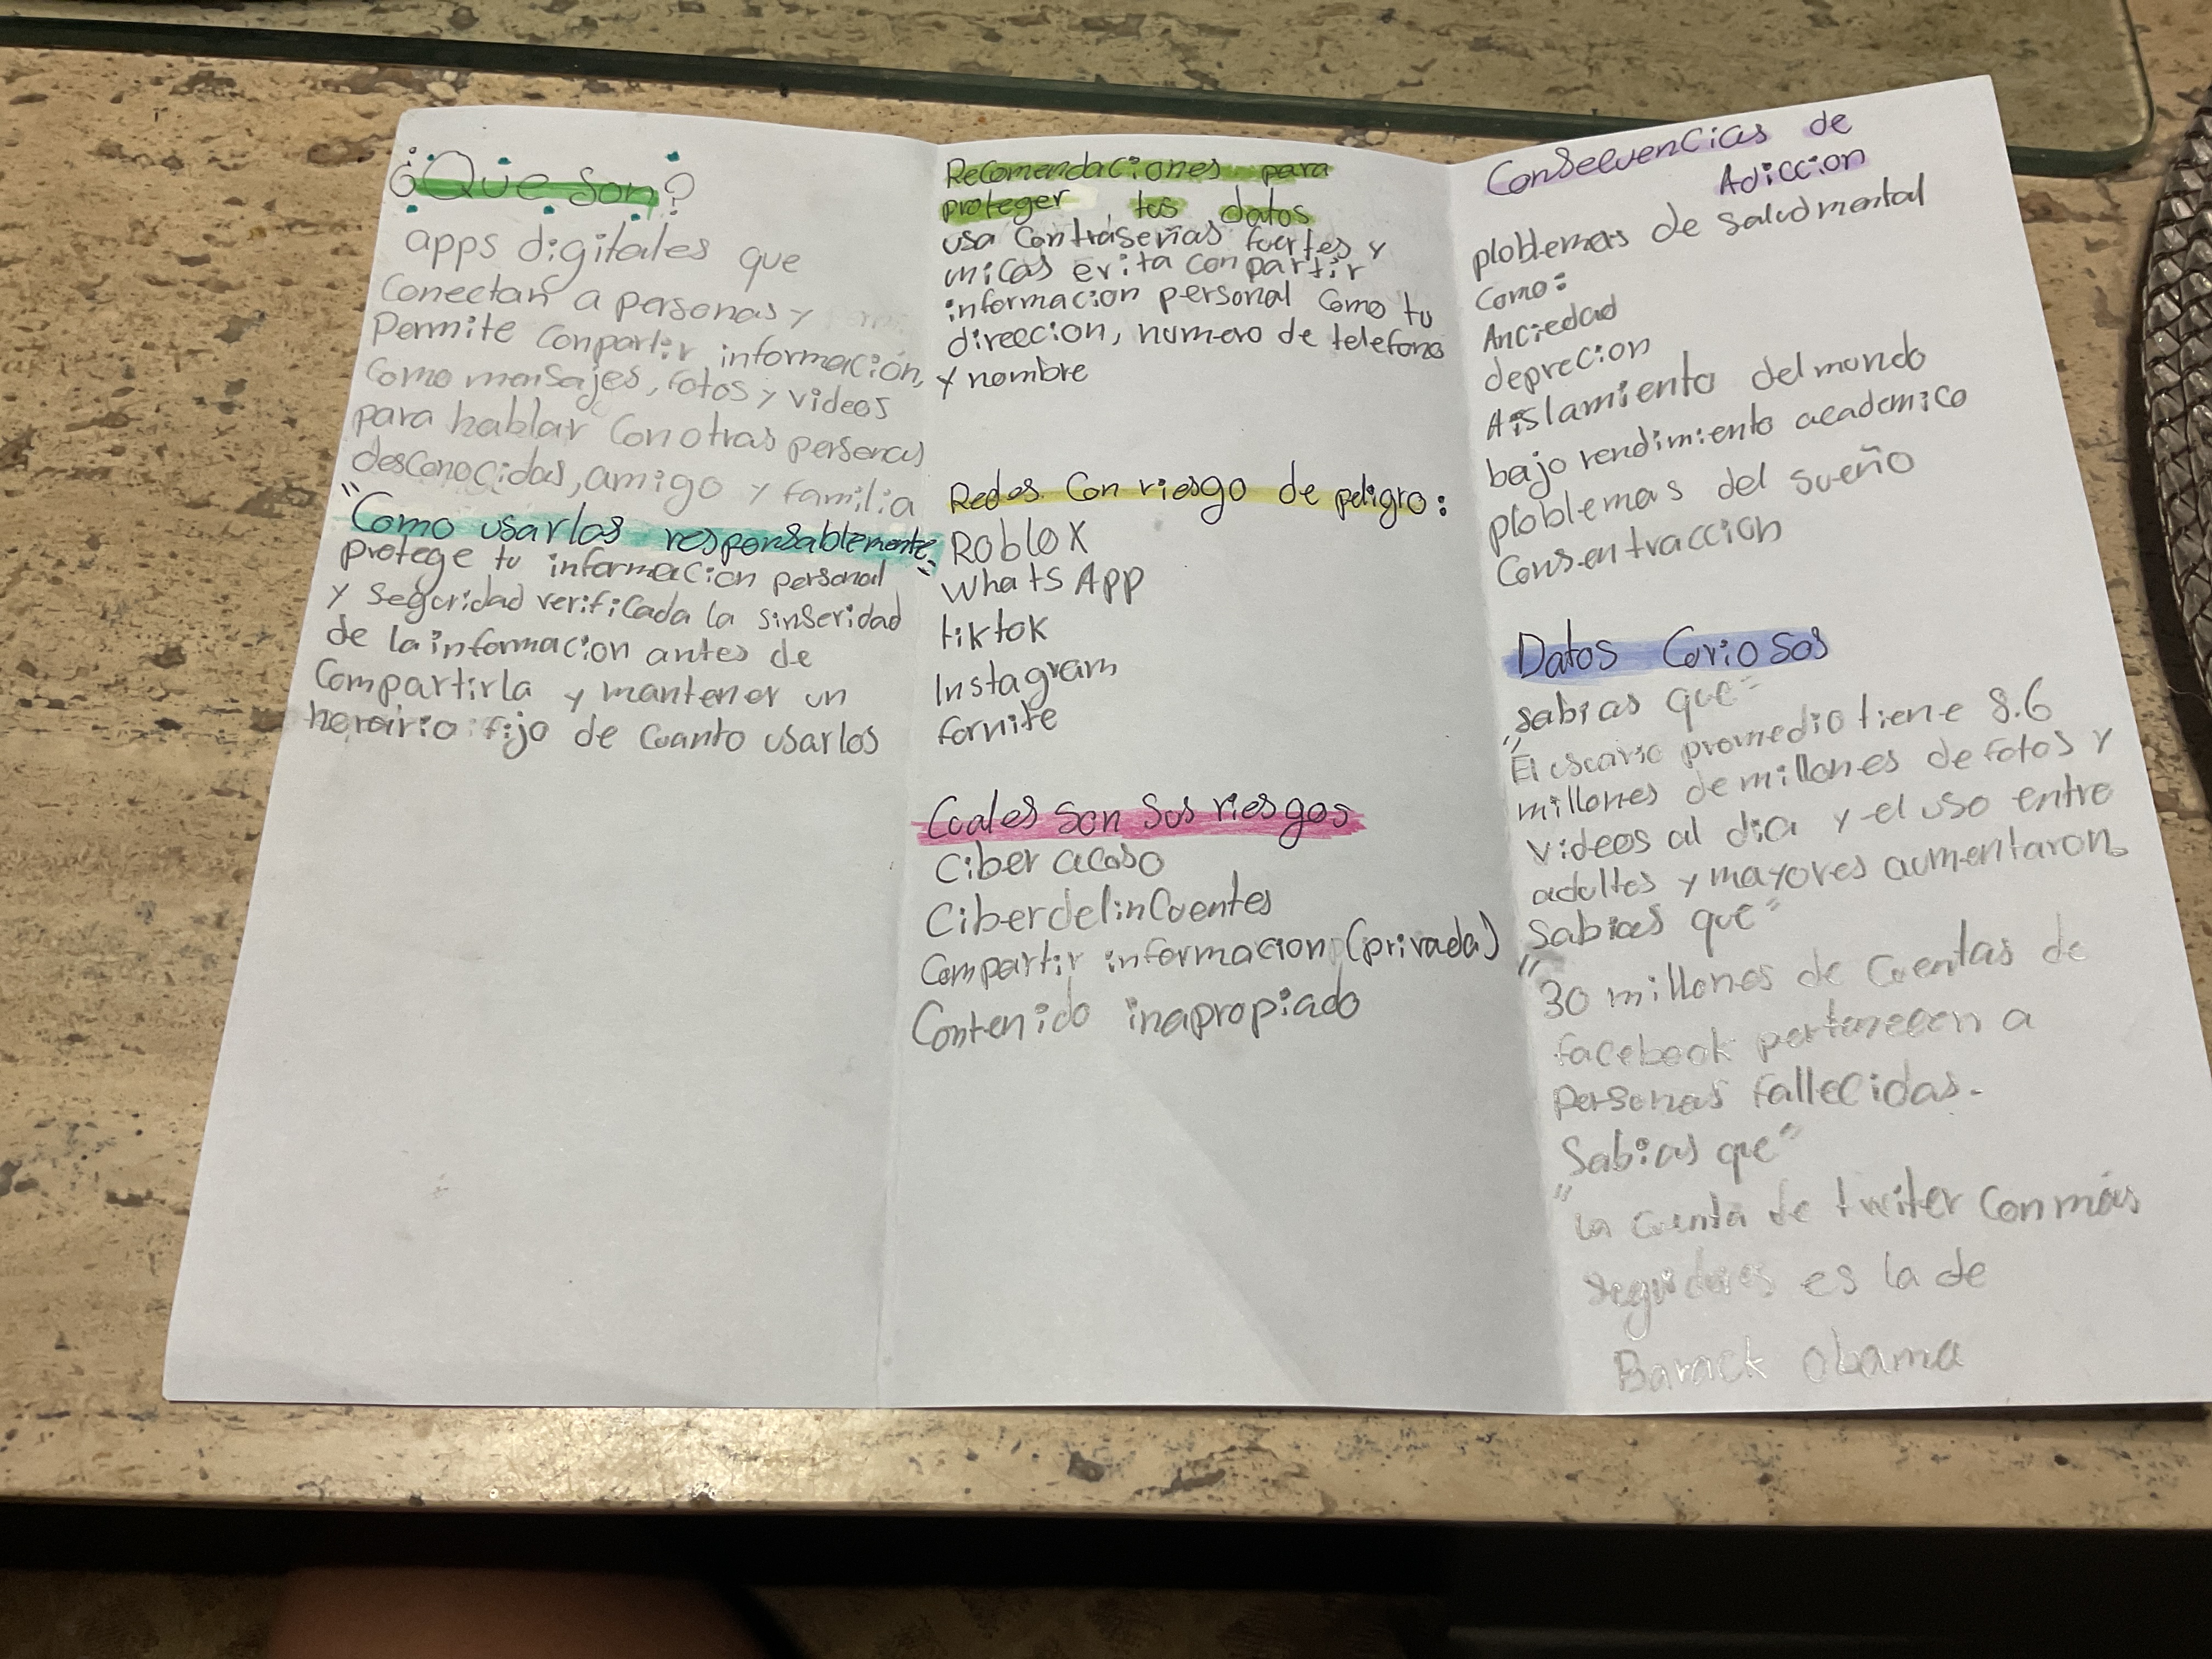 ¿Que son?
apps digitales que
Conectan a personas y
Permite conpartir información,
como mensajes, fotos y videos
para hablar con otras personas
desconocidas, amigo y familia
"Como usarlas responsablemente"
protege tu informacion personal
y seguridad verificada la sinseridad
de la informacion antes de
Compartirla y mantener un
horario fijo de cuanto usarlos
Recomendaciones para
proteger tus datos
usa contraseñas fuertes y
unicas evita conpartir
informacion personal como tu
direccion, numero de telefono
y nombre
Redes con riesgo de peligro:
Roblox
WhatsApp
tiktok
Instagram
fornite
Cuales son sus riesgos
Ciber acoso
Ciberdelincuentes
Compartir informacion (privada)
Contenido inapropiado
Consecuencias de
Adiccion
ploblemas de salud mental
Como:
Anciedad
deprecion
Aislamiento del mundo
bajo rendimiento academico
ploblemas del sueño
Consentraccion
Datos Curiosos
sabias que"
"El usuario promedio tiene 8.6
millones de millones de fotos y
videos al dia y el uso entre
adultos y mayores aumentaron
Sabias que"
"30 millones de cuentas de
facebook pertenecen a
personas fallecidas.
Sabias que"
"la cuenta de twiter con más
seguidores es la de
Barack Obama